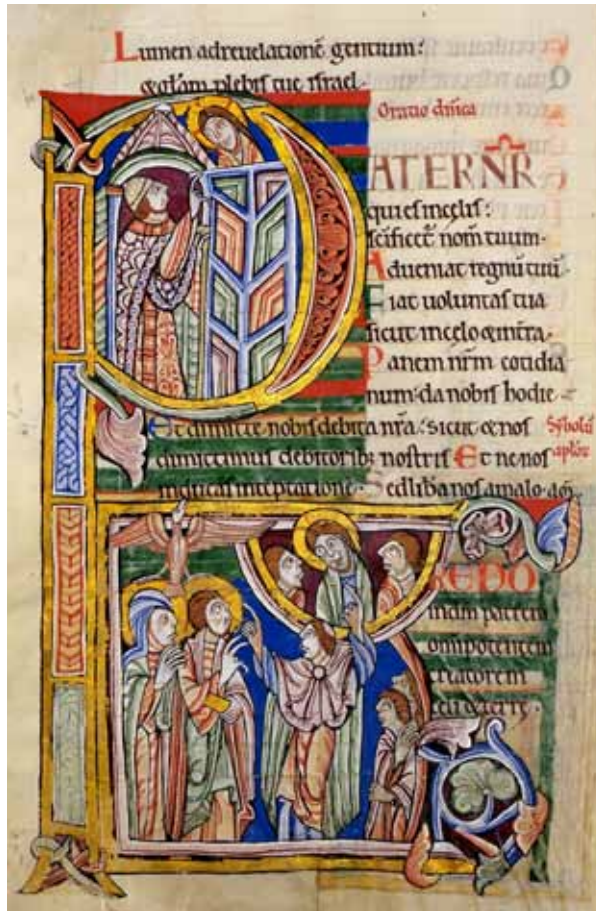 Lumen ad revelationē gentium:
& glām plebis tue israel.
Oratio dñica
PATER NR̄
qui es in celis:
scificet̄ nom̄ tuum.
Adveniat regnū tuū.
Fiat voluntas tua
sicut in celo & in t̄ra.
Panem nr̄m cotidia
num: da nobis hodie.
Et dimitte nobis debita nr̄a: sicut & nos
dimittimus debitorib; nostris Et ne nos
inducas in teptatione. Sed liba nos a malo. am̄
Sÿbolū
aplor̄
CREDO
in dm̄ patrem
omnipotentem
creatorem
celi & terre.